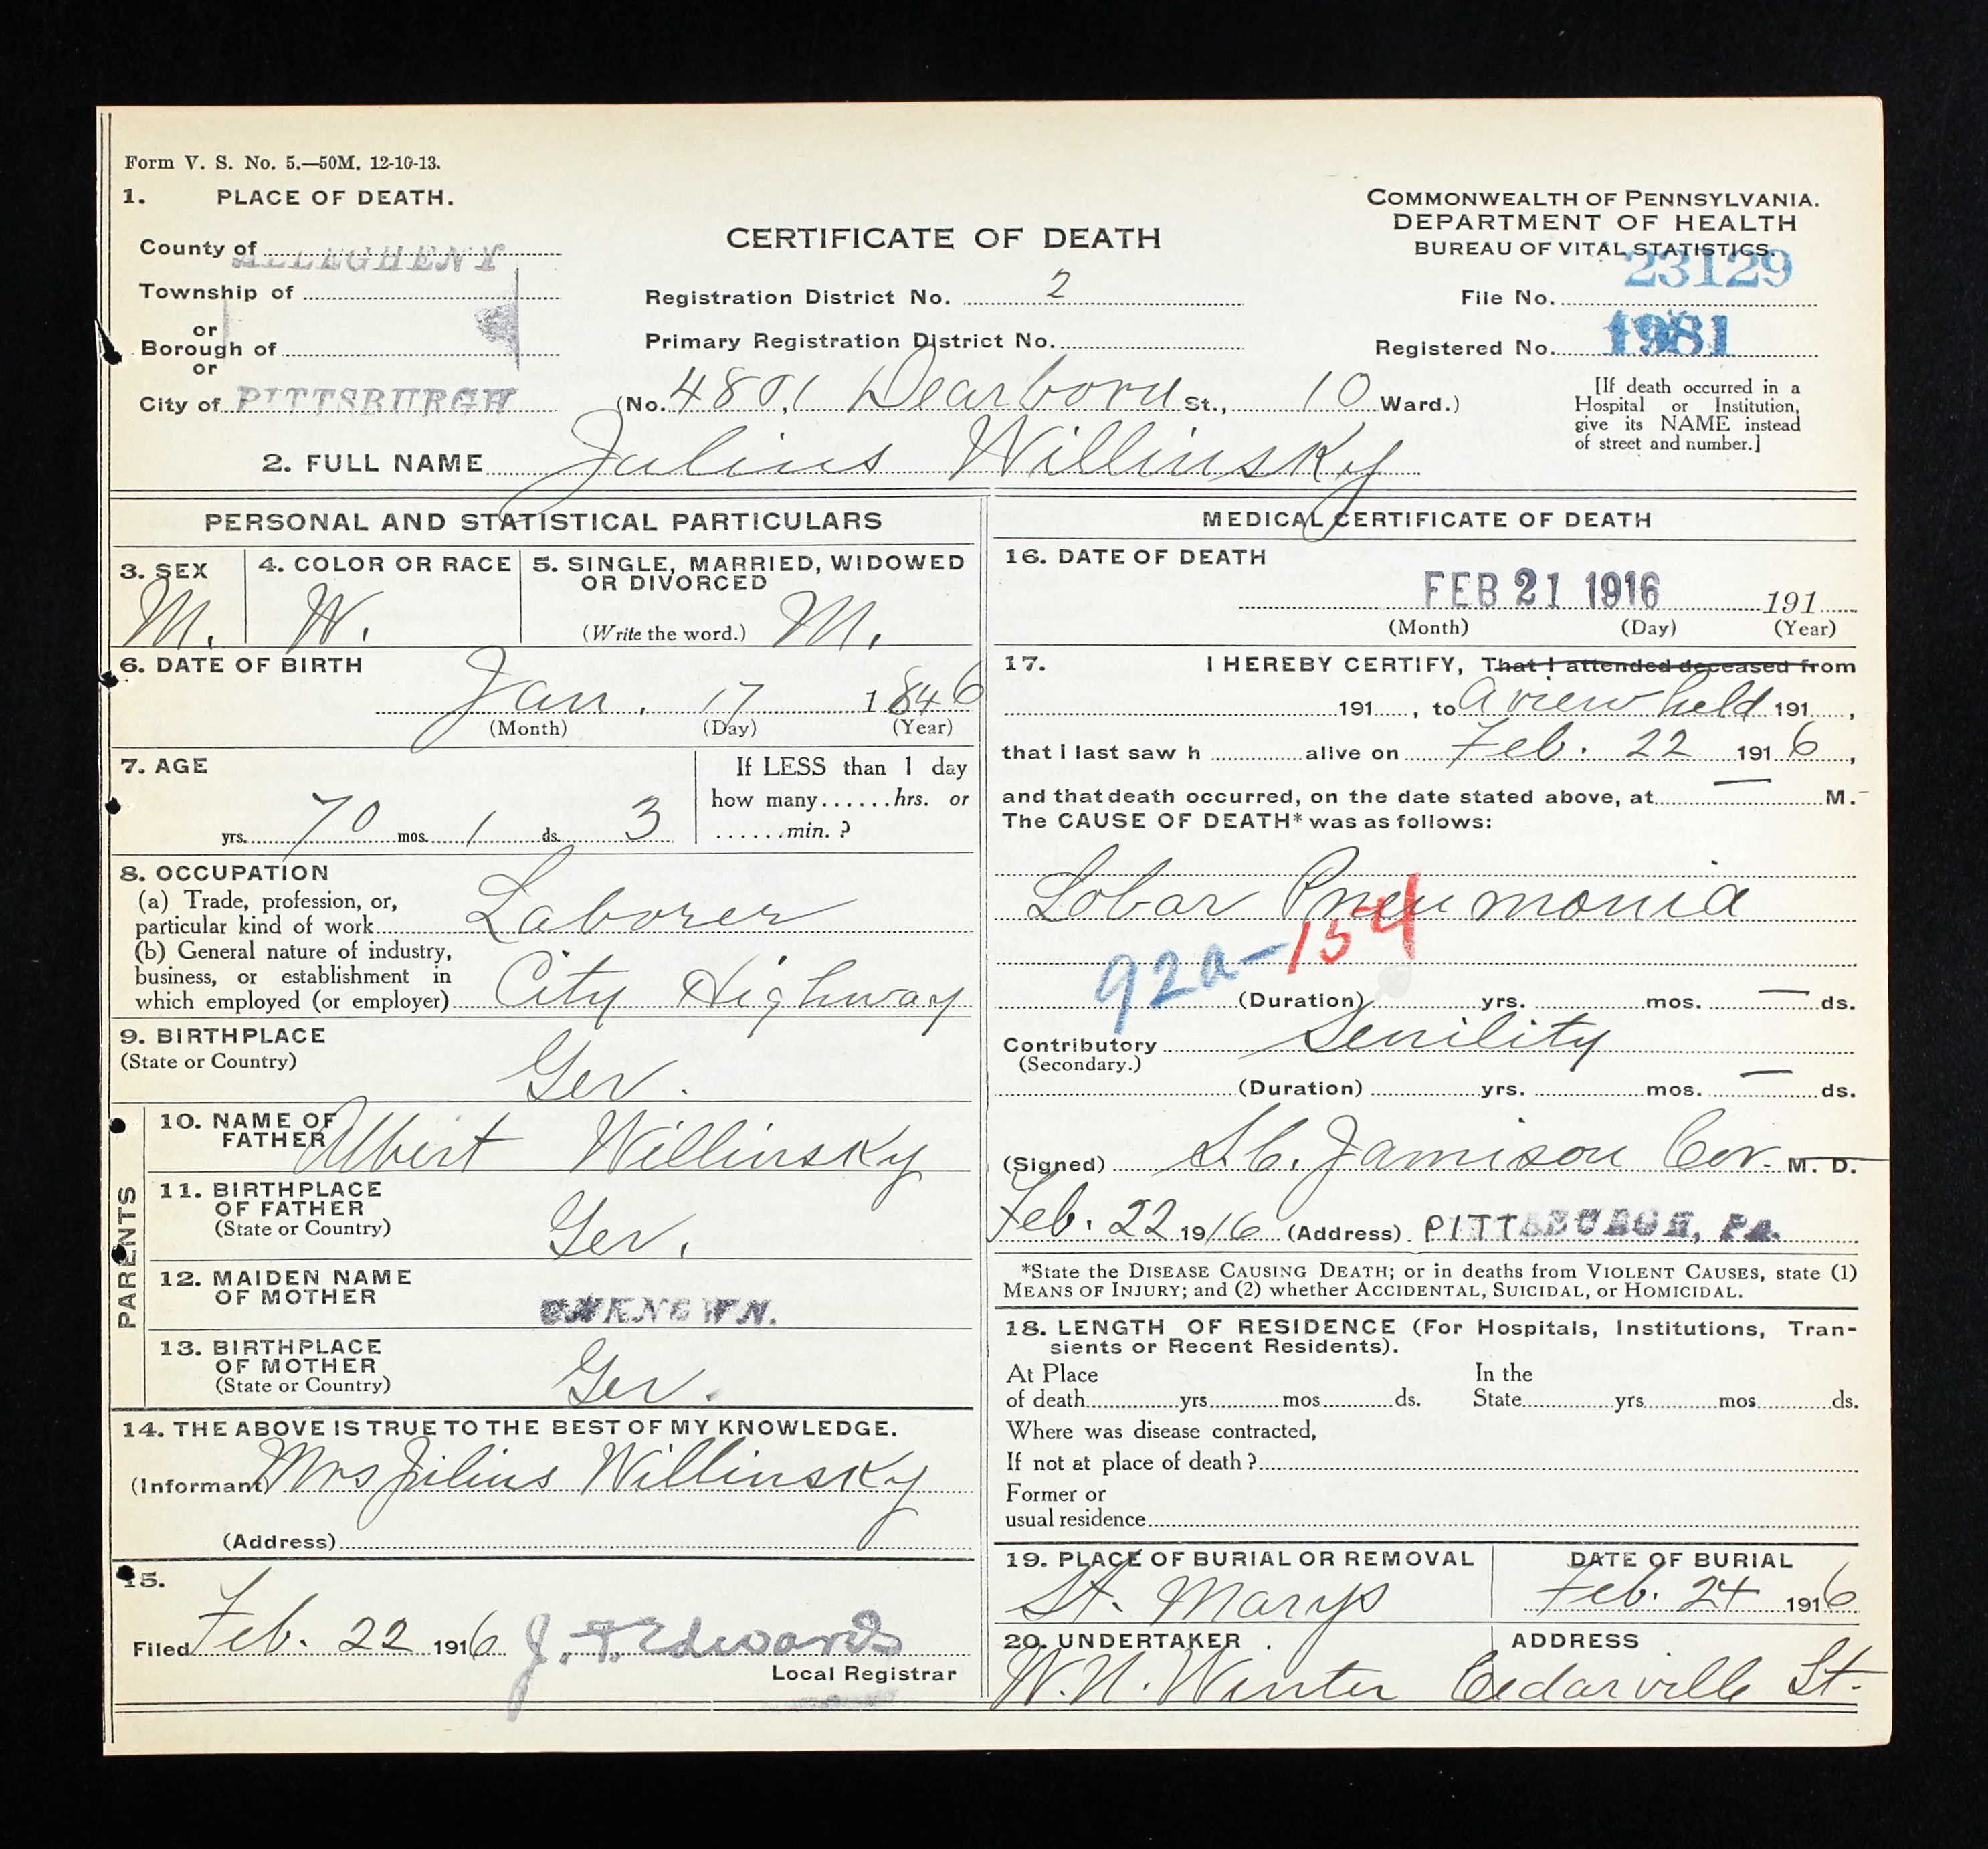 Form V. S. No. 5.—50M. 12-10-13.
1. PLACE OF DEATH.
County of ALLEGHENY
Township of
or
Borough of
or
City of PITTSBURGH
CERTIFICATE OF DEATH
Registration District No. 2
Primary Registration District No.
(No. 4801 Dearborn St., 10 Ward.)
COMMONWEALTH OF PENNSYLVANIA.
DEPARTMENT OF HEALTH
BUREAU OF VITAL STATISTICS.
File No. 23129
Registered No. 1981
[If death occurred in a
Hospital or Institution,
give its NAME instead
of street and number.]
2. FULL NAME Julius Willinsky
PERSONAL AND STATISTICAL PARTICULARS
3. SEX
M.
4. COLOR OR RACE
W.
5. SINGLE, MARRIED, WIDOWED
OR DIVORCED
(Write the word.) M.
6. DATE OF BIRTH
Jan. 17 1846
(Month) (Day) (Year)
7. AGE
yrs. 70 mos. 1 ds. 3
If LESS than 1 day
how many......hrs. or
......min. ?
8. OCCUPATION
(a) Trade, profession, or,
particular kind of work Laborer
(b) General nature of industry,
business, or establishment in
which employed (or employer) City Highway
9. BIRTHPLACE
(State or Country)
Ger.
PARENTS
10. NAME OF
FATHER Albert Willinsky
11. BIRTHPLACE
OF FATHER
(State or Country)
Ger.
12. MAIDEN NAME
OF MOTHER UNKNOWN.
13. BIRTHPLACE
OF MOTHER
(State or Country)
Ger.
14. THE ABOVE IS TRUE TO THE BEST OF MY KNOWLEDGE.
(Informant) Mrs Julius Willinsky
(Address)
15.
Filed Feb. 22 1916 J. F. Edwards
Local Registrar
MEDICAL CERTIFICATE OF DEATH
16. DATE OF DEATH
FEB 21 1916 191
(Month) (Day) (Year)
17. I HEREBY CERTIFY, That I attended deceased from
191 , to A view held 191 ,
that I last saw h alive on Feb. 22 1916,
and that death occurred, on the date stated above, at — M.
The CAUSE OF DEATH* was as follows:
Lobar Pneumonia
92a-154
(Duration) yrs. mos. — ds.
Contributory Senility
(Secondary.)
(Duration) yrs. mos. — ds.
(Signed) S.C. Jamison Cor. M. D.
Feb. 22 1916 (Address) PITTSBURGH, PA.
*State the DISEASE CAUSING DEATH; or in deaths from VIOLENT CAUSES, state (1)
MEANS OF INJURY; and (2) whether ACCIDENTAL, SUICIDAL, or HOMICIDAL.
18. LENGTH OF RESIDENCE (For Hospitals, Institutions, Tran-
sients or Recent Residents).
At Place
of death yrs. mos. ds.
In the
State yrs. mos. ds.
Where was disease contracted,
If not at place of death ?
Former or
usual residence
19. PLACE OF BURIAL OR REMOVAL
St. Marys
DATE OF BURIAL
Feb. 24 1916
20. UNDERTAKER
W.N. Winter
ADDRESS
Cedarville St.